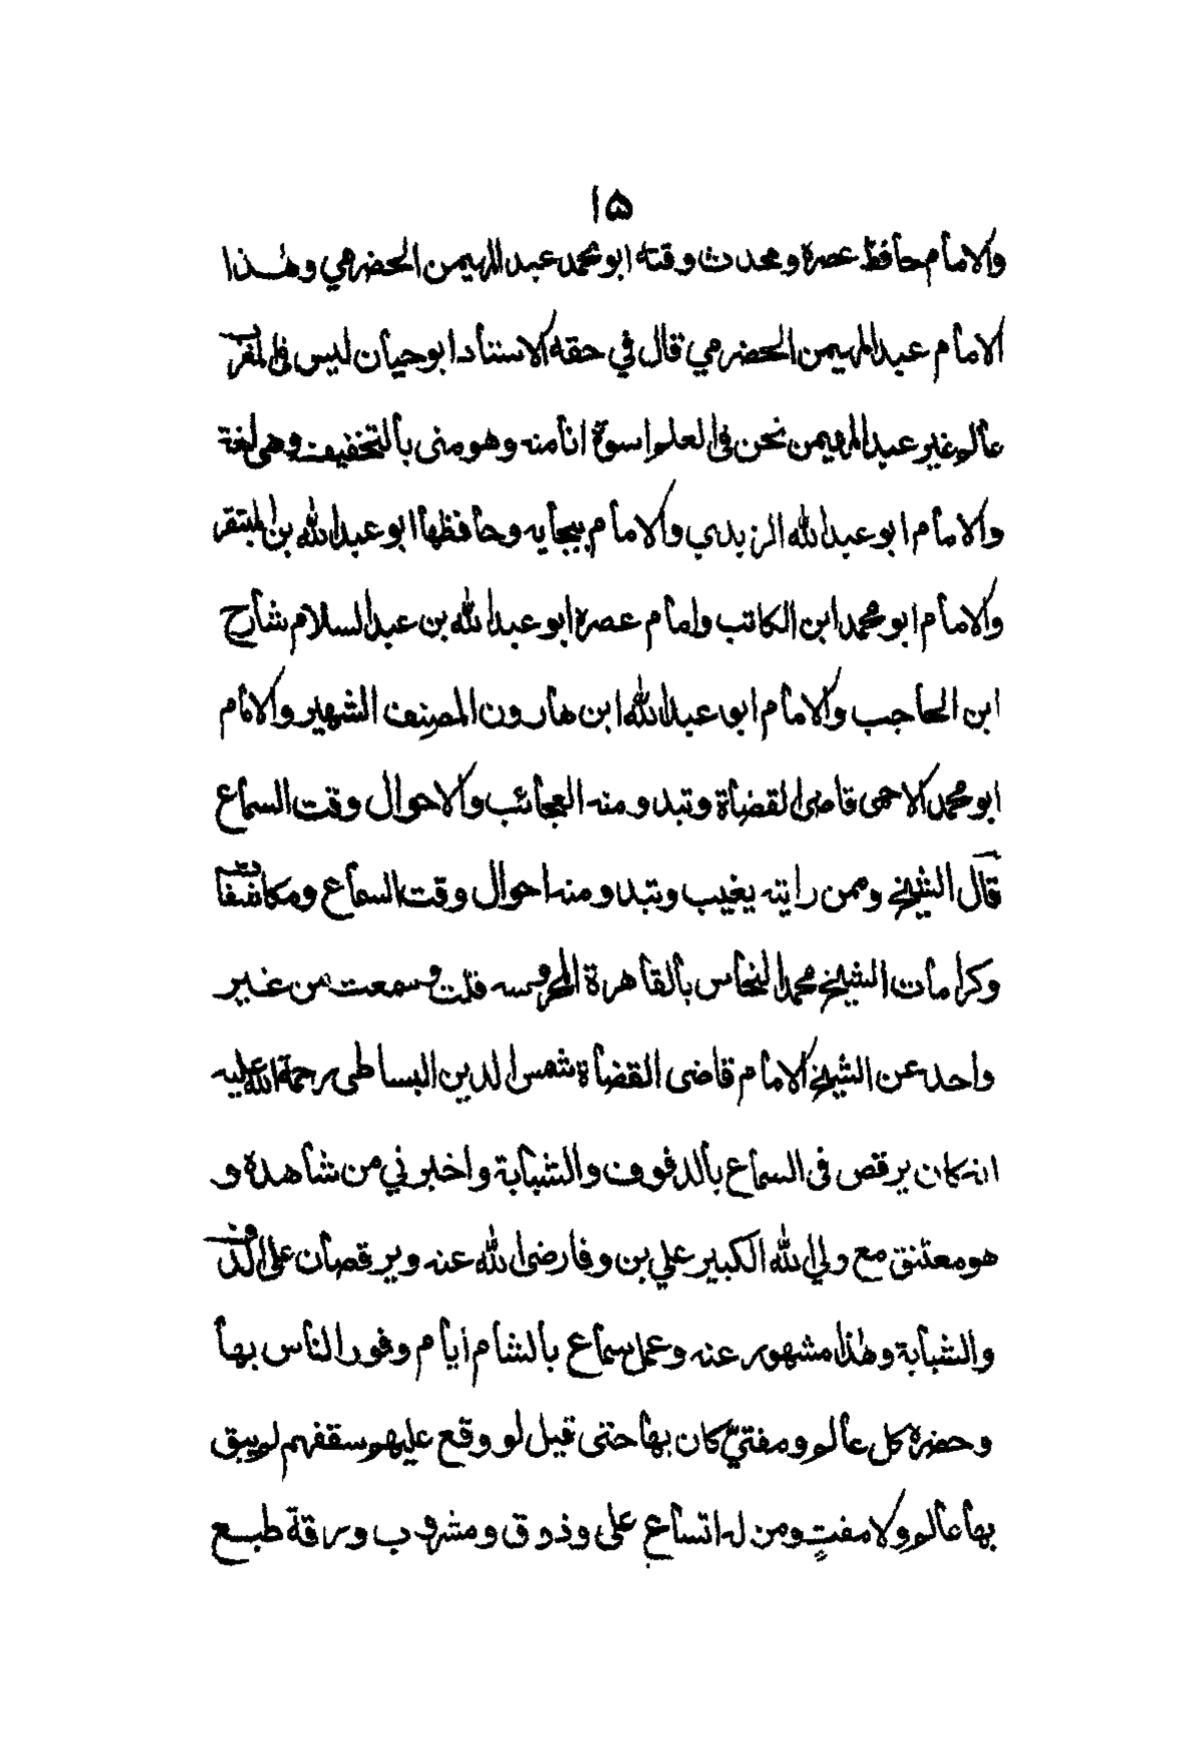 ۱۵
والامام حافظ عصره ومحدث وقته ابو محمد عبد المهيمن الحضرمي وهٰذا
الامام عبد المهيمن الحضرمي قال في حقه الاستاد ابو حيان ليس فى المغرب
عالم غير عبد المهيمن نحن فى العلم اسوة انا منه وهو منى بالتخفيف وهى لغة
والامام ابو عبد الله الزبيدي والامام ببجايه وحافظها ابو عبد الله بن
والامام ابو محمد ابن الكاتب وامام عصره ابو عبد الله بن عبد السلام شارح
ابن الحاجب والامام ابو عبد الله ابن هارون المصنف الشهير والامام
ابو محمد الاحمى قاضى القضاة وتبدو منه العجائب والاحوال وقت السماع
قال الشيخ وممن رايته يغيب وتبدو منه احوال وقت السماع ومكاشفات
وكرامات الشيخ محمد النحاس بالقاهرة المحروسه قلت وسمعت من غير
واحد عن الشيخ الامام قاضى القضاة شمس الدين البساطى رحمة الله عليه
انه كان يرقص فى السماع بالدفوف والشبابة واخبرني من شاهده و
هو معتنق مع ولي الله الكبير علي بن وفا رضى الله عنه ويرقصان على الدف
والشبابة وهٰذا مشهور عنه وعمل سماع بالشام أيام وفور الناس بها
وحضره كل عالم ومفتيّ كان بها حتى قيل لو وقع عليهم سقفهم لم يبق
بها عالم ولا مفتٍ ومن له اتساع على وذوق ومشروب ورقة طبع